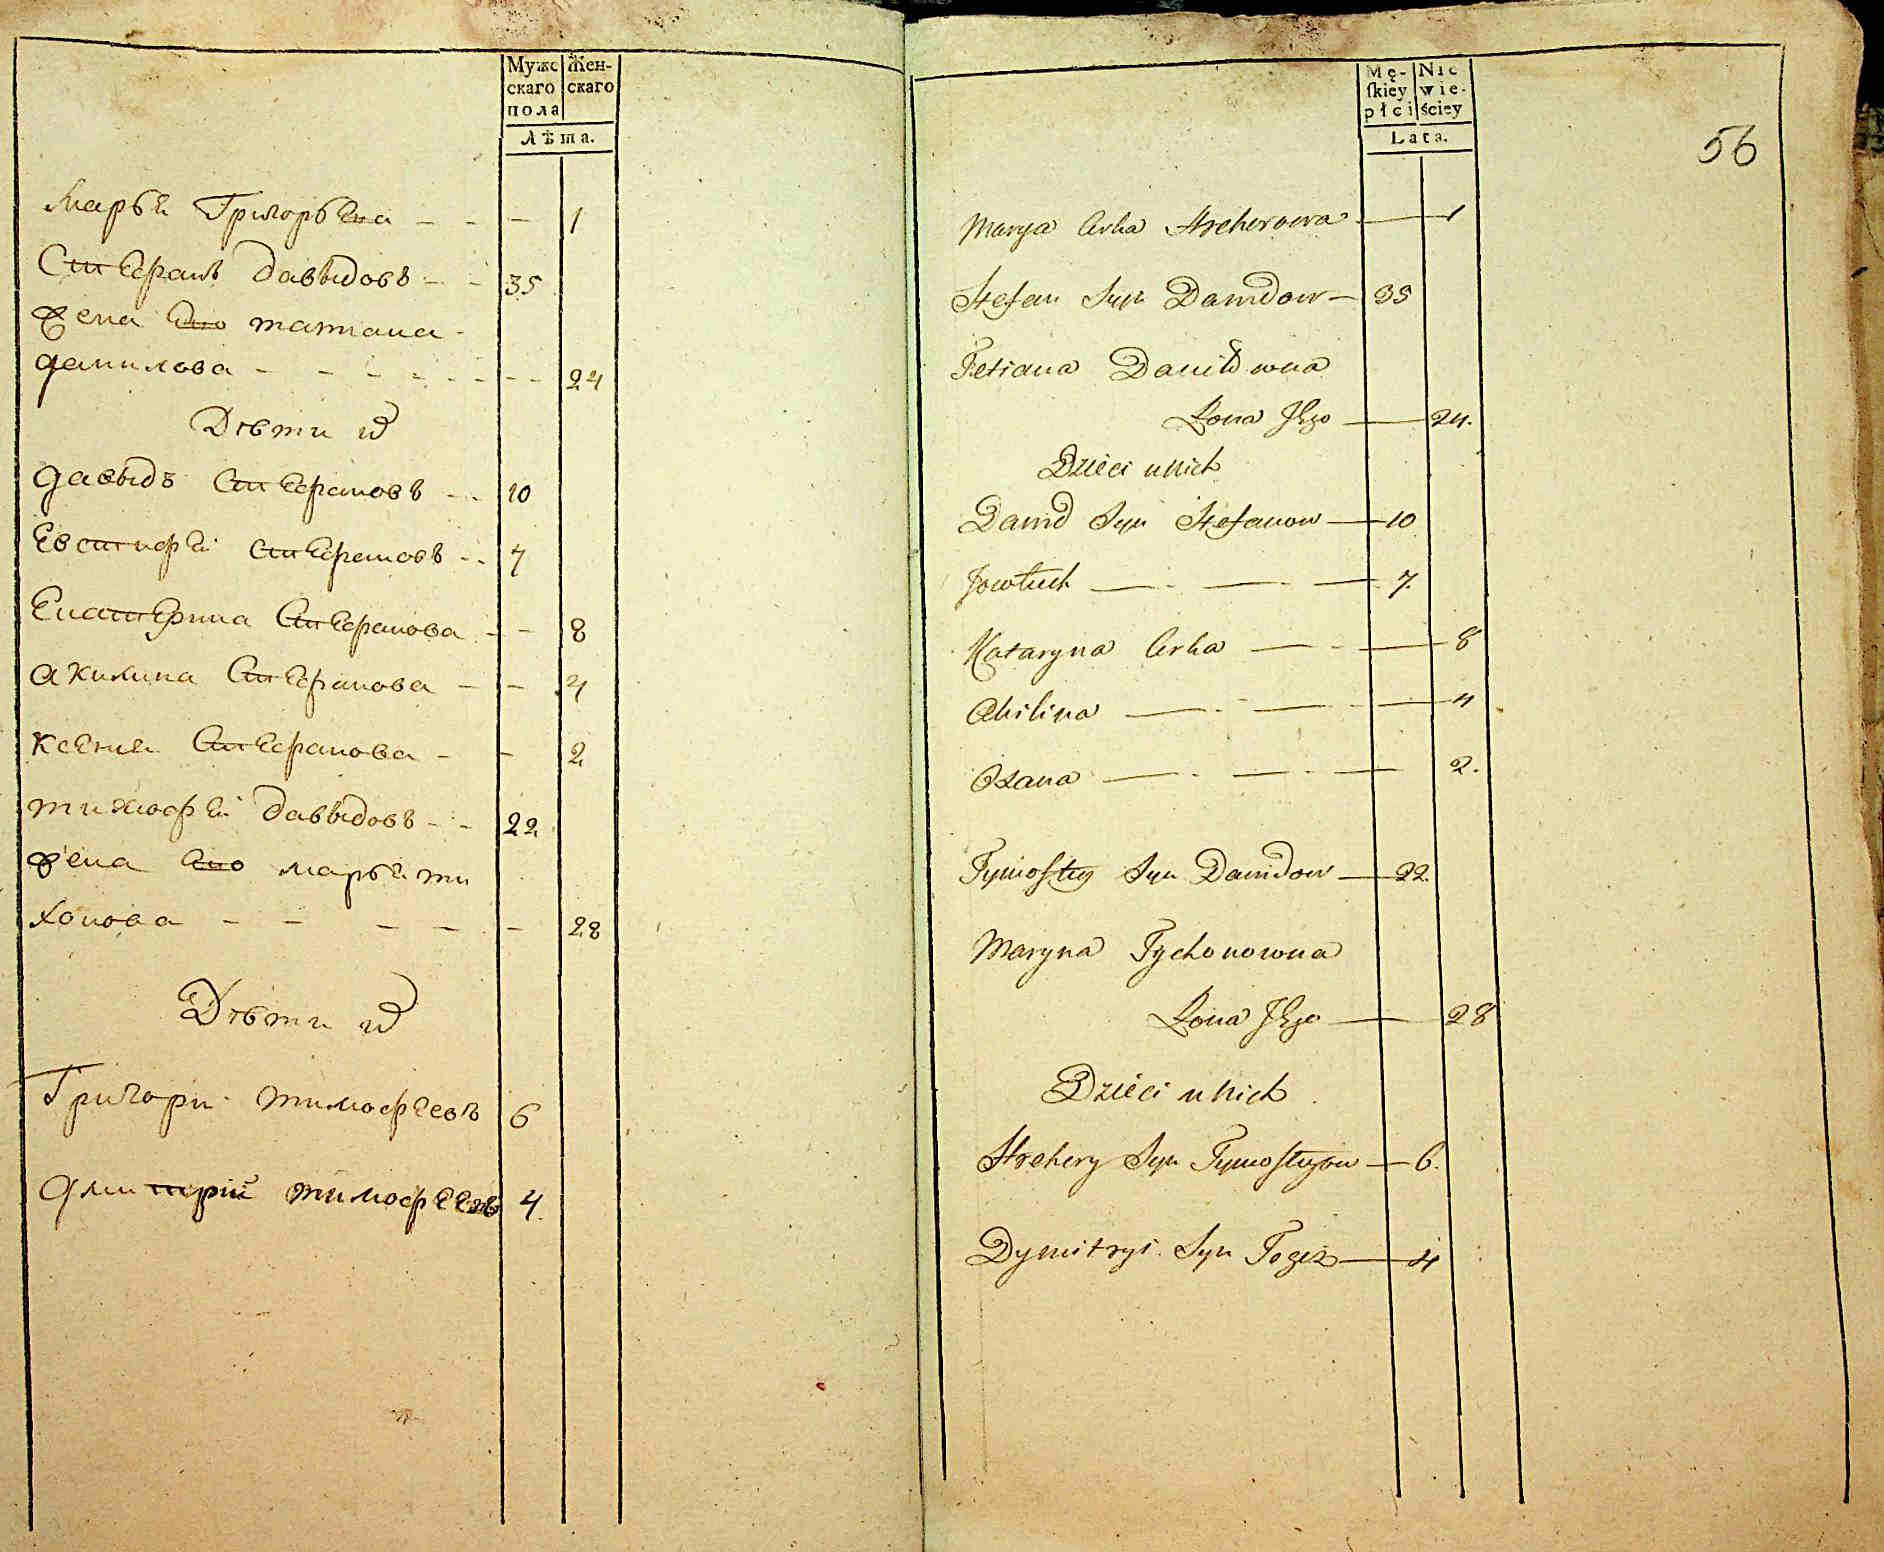 Мужс
скаго
пола
Жен-
скаго
Лѣта.
Марья Григорьева - - - 1
Стефанъ Давыдовъ - - 35
жена ево татиана
данилова - - - - - - - - 24
Дѣти ихъ
давыдъ Стефановъ - - 10
Евстифей стефановъ - - 7
Екатерина Стефанова - - 8
акилина Стефанова - - 4
ксения Стефанова - - 2
тимофей давыдовъ - - 22
жена ево марья ти
хонова - - - - - 28
Дѣти ихъ
Григори тимофеевъ 6
дмитрий тимофеевъ 4
Mę-
skiey
płci
Nie
wie-
ściey
Lata.
56
Marya Crka Hrehorowa — 1
Stefan Syn Dawidow — 35
Tetiana Daniłowna
Żona Jego — 24.
Dzieci unich
Dawid Syn Stefanow — 10
Jowtuch — — — 7.
Kataryna Crka — - — 8
Akilina — - — - — 4
Oxana — - — - — 2.
Tymoftey Syn Dawidow — 22.
Maryna Tychonowna
Żona Jego — 28
Dzieci unich
Hrehory Syn Tymofteyow — 6.
Dymitryi Syn Togoż — 4